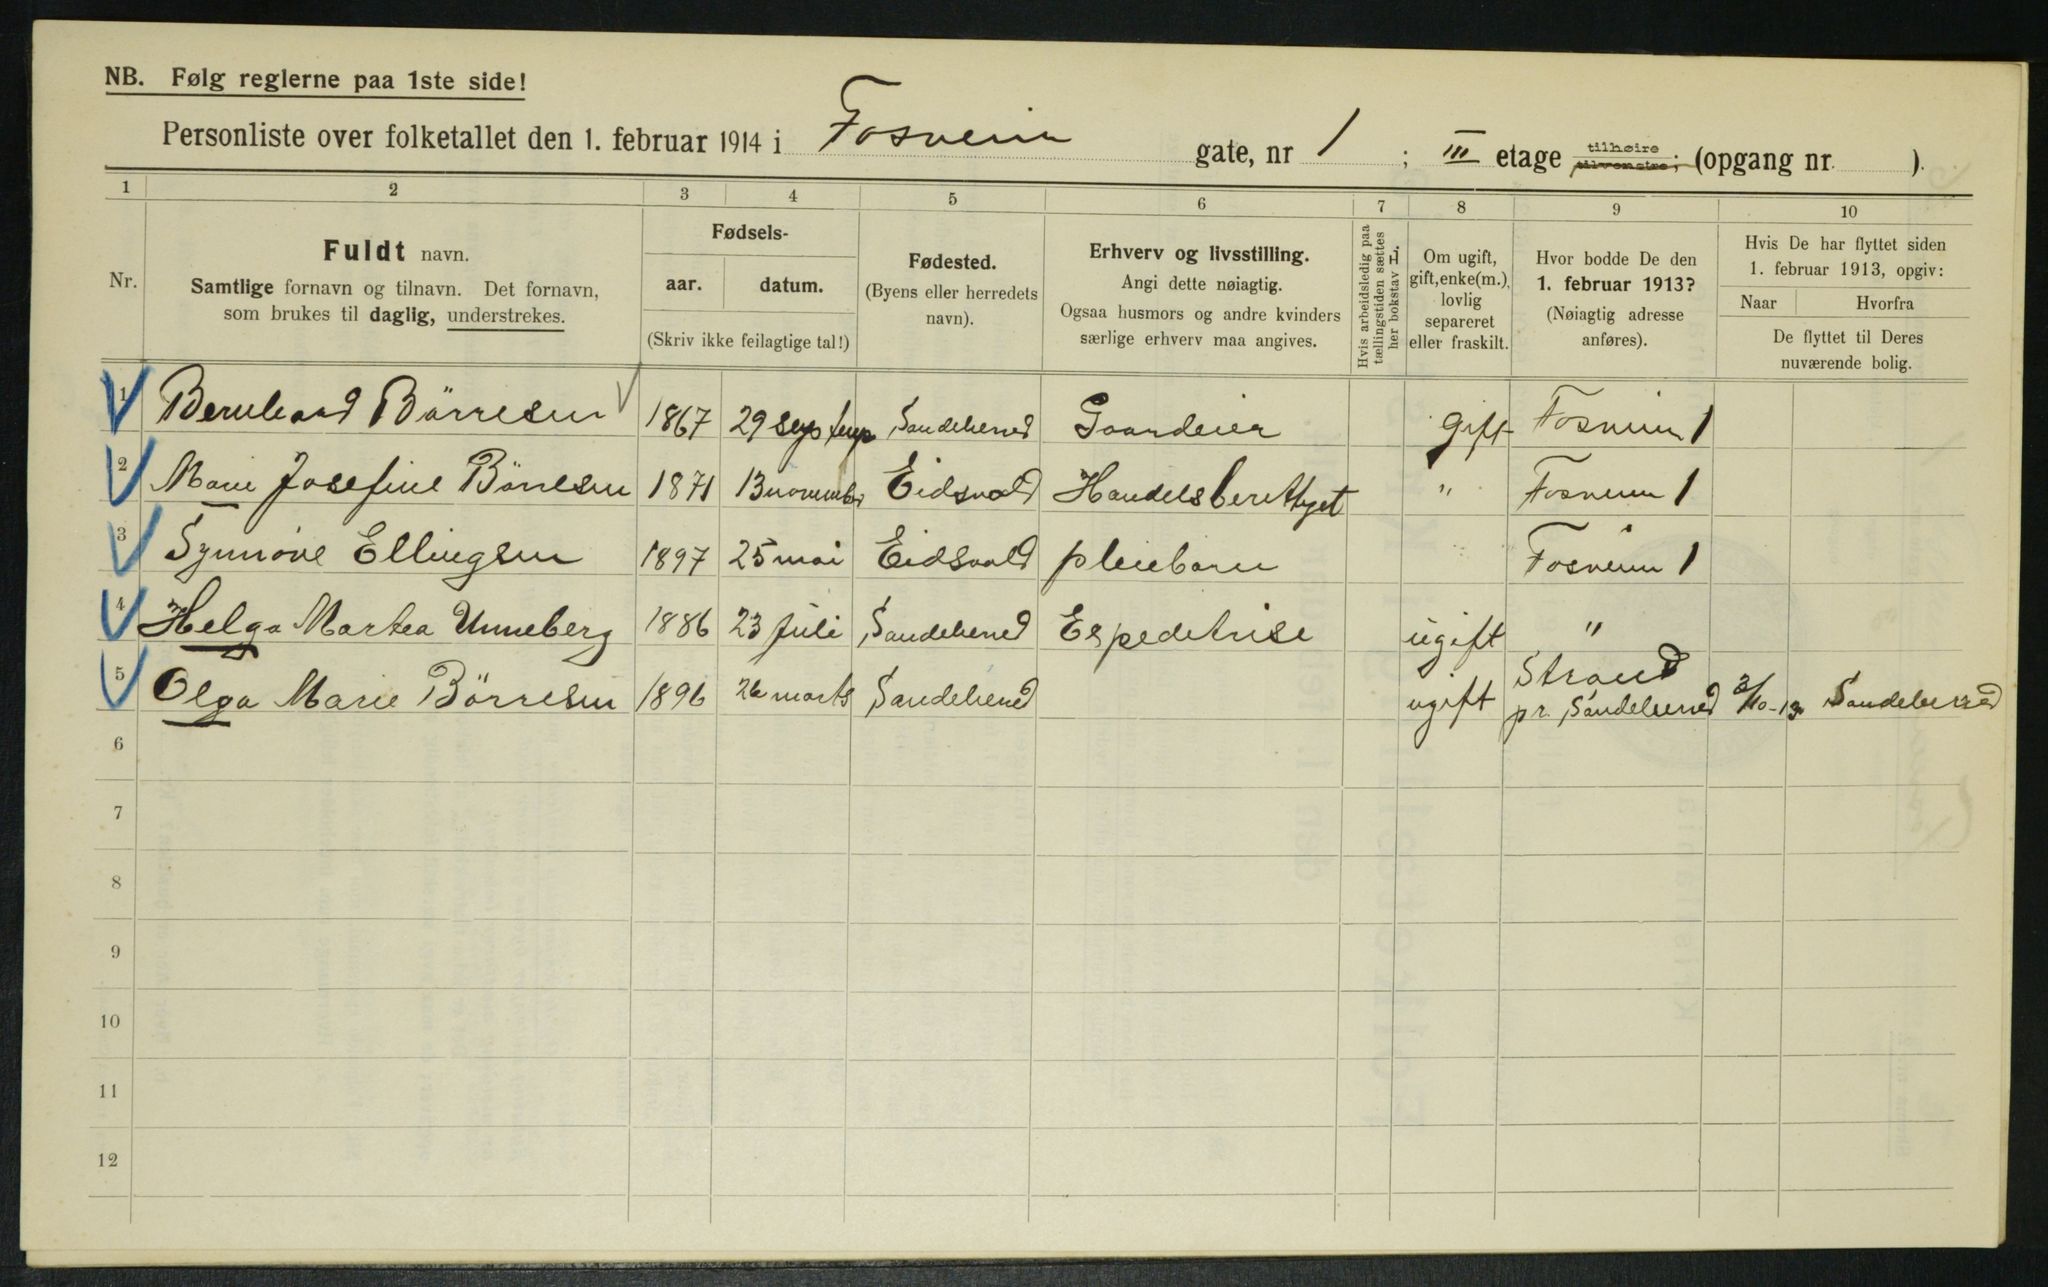 NB. Følg reglerne paa 1ste side!
Personliste over folketallet den 1. februar 1914 i Fosveien gate, nr 1 ; III etage tilhøire tilvenstre; (opgang nr. ).
1 2 3 4 5 6 7 8 9 10
Nr.
Fuldt navn.
Samtlige fornavn og tilnavn. Det fornavn,
som brukes til daglig, understrekes.
Fødsels-
aar. datum.
(Skriv ikke feilagtige tal!)
Fødested.
(Byens eller herredets
navn).
Erhverv og livsstilling.
Angi dette nøiagtig.
Ogsaa husmors og andre kvinders
særlige erhverv maa angives.
Hvis arbeidsledig paa
tællingstiden sættes
her bokstav L.
Om ugift,
gift, enke(m.),
lovlig
separeret
eller fraskilt.
Hvor bodde De den
1. februar 1913?
(Nøiagtig adresse
anføres).
Hvis De har flyttet siden
1. februar 1913, opgiv:
Naar Hvorfra
De flyttet til Deres
nuværende bolig.
1 Bernhard Börresen 1867 29 Sandeherred Gaardeier gift Fosveien 1
2 Marie Josefine Börresen 1871 13 november Eidsvold Handelsberettiget " Fosveien 1
3 Synnöve Ellingsen 1897 25 mai Eidsvold pleiebarn Fosveien 1
4 Helga Martea Unneberg 1886 23 Juli Sandeherred Expeditrise ugift "
5 Olga Marie Börresen 1896 26 marts Sandeherred ugift Strand
pr. Sandeherred 3/10-13 Sandeherred
6
7
8
9
10
11
12